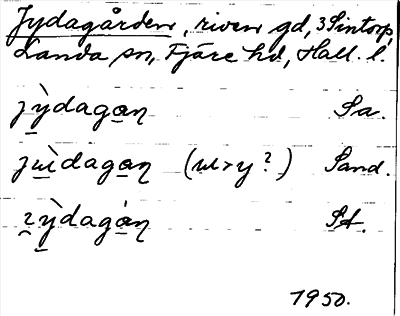 Jydagården, riven gd, 3 Sintorp,
Landa sn, Fjäre hd, Hall. l.
jỳdagaṇ Sa.
jɯ̀dagaṇ (ɯ>y?) Sand.
ỳdagȧṇ St.
1950.